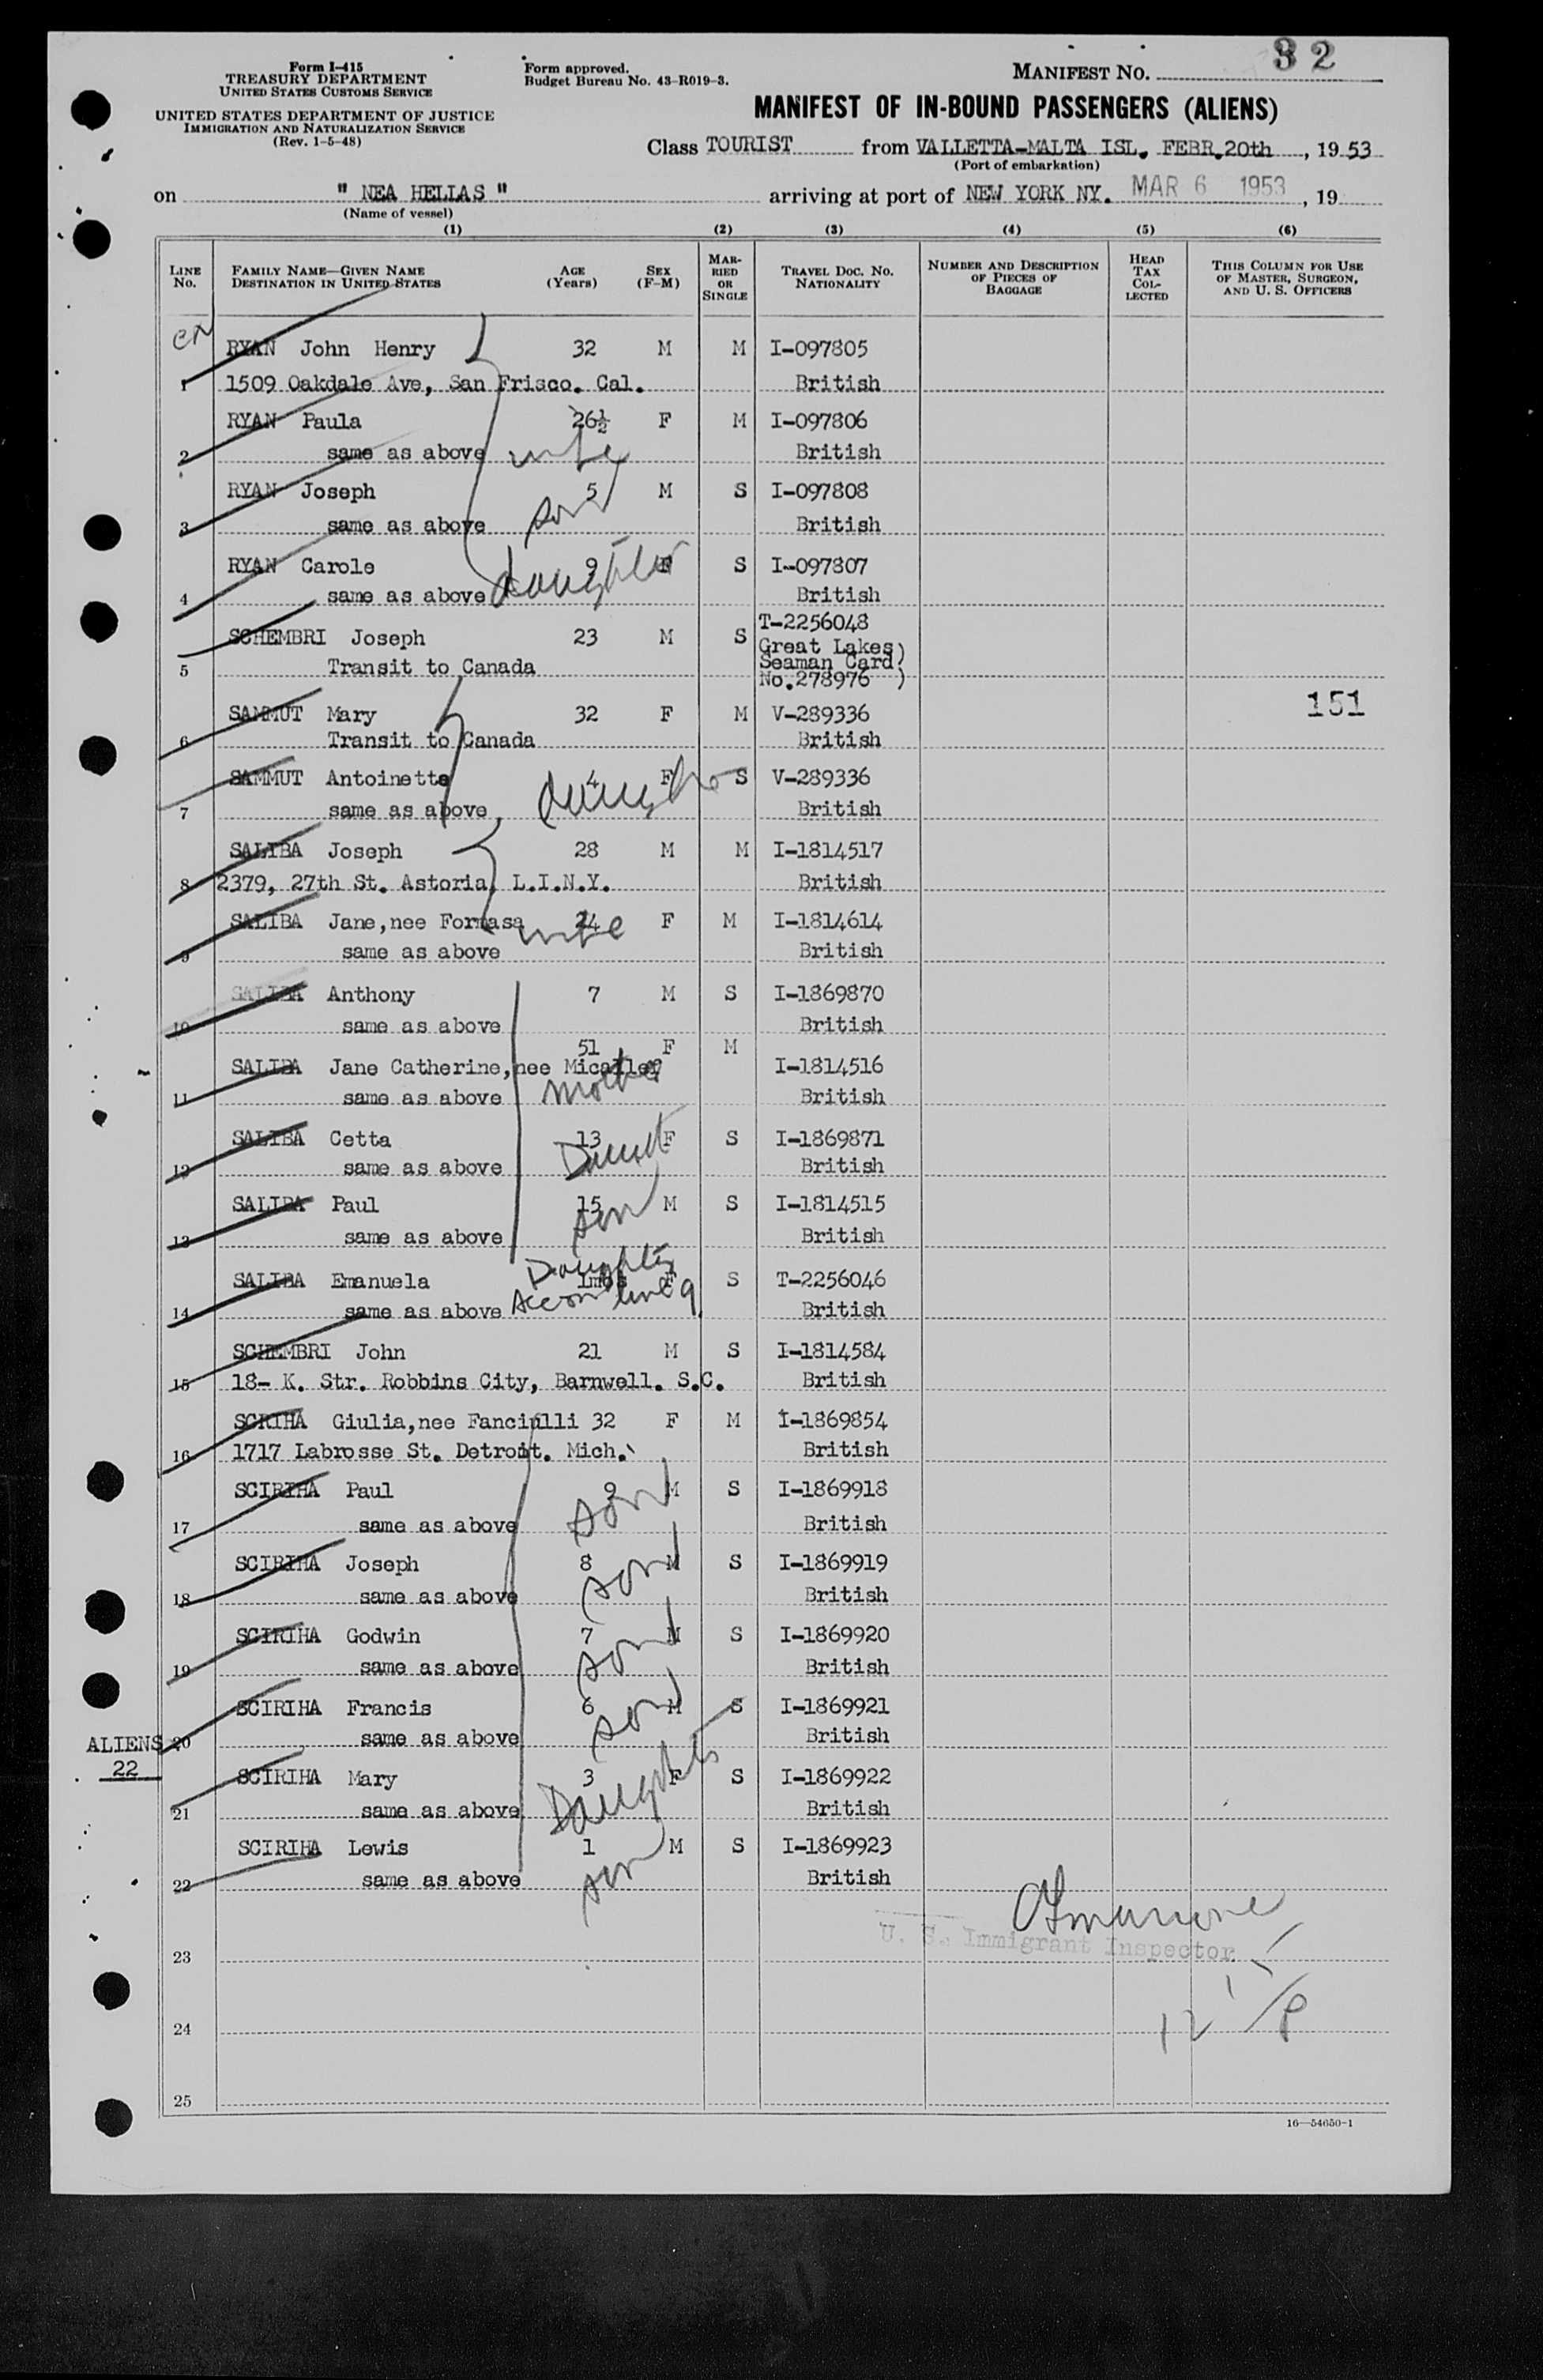 Form I-415
TREASURY DEPARTMENT
UNITED STATES CUSTOMS SERVICE
UNITED STATES DEPARTMENT OF JUSTICE
IMMIGRATION AND NATURALIZATION SERVICE
(Rev. 1-5-48)
Form approved.
Budget Bureau No. 43-R019-3.
MANIFEST NO. 32
MANIFEST OF IN-BOUND PASSENGERS (ALIENS)
Class TOURIST from VALLETTA-MALTA ISL. FEBR.20th, 1953
(Port of embarkation)
on " NEA HELLAS " arriving at port of NEW YORK NY. MAR 6 1953, 19
(Name of vessel)
(1) (2) (3) (4) (5) (6)
LINE No. FAMILY NAME—GIVEN NAME DESTINATION IN UNITED STATES AGE (Years) SEX (F-M) MARRIED OR SINGLE TRAVEL DOC. NO. NATIONALITY NUMBER AND DESCRIPTION OF PIECES OF BAGGAGE HEAD TAX COLLECTED THIS COLUMN FOR USE OF MASTER, SURGEON, AND U. S. OFFICERS
RYAN John Henry 32 M M I-097805
1 1509 Oakdale Ave, San Frisco. Cal. British
RYAN Paula 26½ F M I-097806
2 same as above wife British
RYAN Joseph 5 M S I-097808
3 same as above son British
RYAN Carole 9 F S I-097807
4 same as above daughter British
SCHEMBRI Joseph 23 M S T-2256048
Great Lakes)
5 Transit to Canada Seaman Card)
No.278976 )
SAMMUT Mary 32 F M V-289336 151
6 Transit to Canada British
SAMMUT Antoinette 4 F S V-289336
7 same as above daughter British
SALIBA Joseph 28 M M I-1814517
8 2379, 27th St. Astoria, L.I.N.Y. British
SALIBA Jane,nee Formasa 24 F M I-1814614
9 same as above wife British
SALIBA Anthony 7 M S I-1869870
10 same as above British
51 F M
SALIBA Jane Catherine,nee Micallef I-1814516
11 same as above mother British
SALIBA Cetta 13 F S I-1869871
12 same as above Daught British
SALIBA Paul 15 M S I-1814515
13 same as above son British
SALIBA Emanuela Daughter 1mos F S T-2256046
14 same as above Accom line 9. British
SCHEMBRI John 21 M S I-1814584
15 18- K. Str. Robbins City, Barnwell. S.C. British
SCRIHA Giulia,nee Fanciulli 32 F M I-1869854
16 1717 Labrosse St. Detroit. Mich. British
SCIRIHA Paul 9 M S I-1869918
17 same as above son British
SCIRIHA Joseph 8 M S I-1869919
18 same as above son British
SCIRIHA Godwin 7 M S I-1869920
19 same as above son British
SCIRIHA Francis 6 M S I-1869921
ALIENS 20 same as above son British
22
SCIRIHA Mary 3 F S I-1869922
21 same as above Daughter British
SCIRIHA Lewis 1 M S I-1869923
22 same as above son British
U. S. Immigrant Inspector
23
24
25
16—54650-1